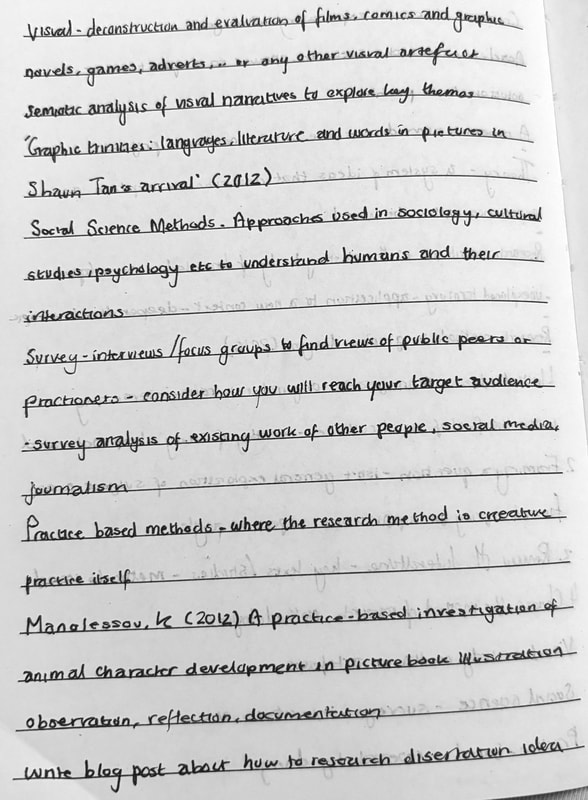 Visual - deconstruction and evaluation of films, comics and graphic
novels, games, adverts, .. or any other visual artefact
semiotic analysis of visual narratives to explore key themes
'Graphic trinities: languages, literature and words in pictures in
Shaun Tan's arrival' (2012)
Social Science Methods. Approaches used in sociology, cultural
studies, psychology etc to understand humans and their
interactions
Survey - interviews / focus groups to find views of public peers or
practioners - consider how you will reach your target audience
- survey analysis of existing work of other people, social media,
journalism
Practice based methods - where the research method is creative
practice itself
(2012) A practice-based investigation of
animal character development in picture book illustration
observation, reflection, documentation
write blog post about how to research disertation idea